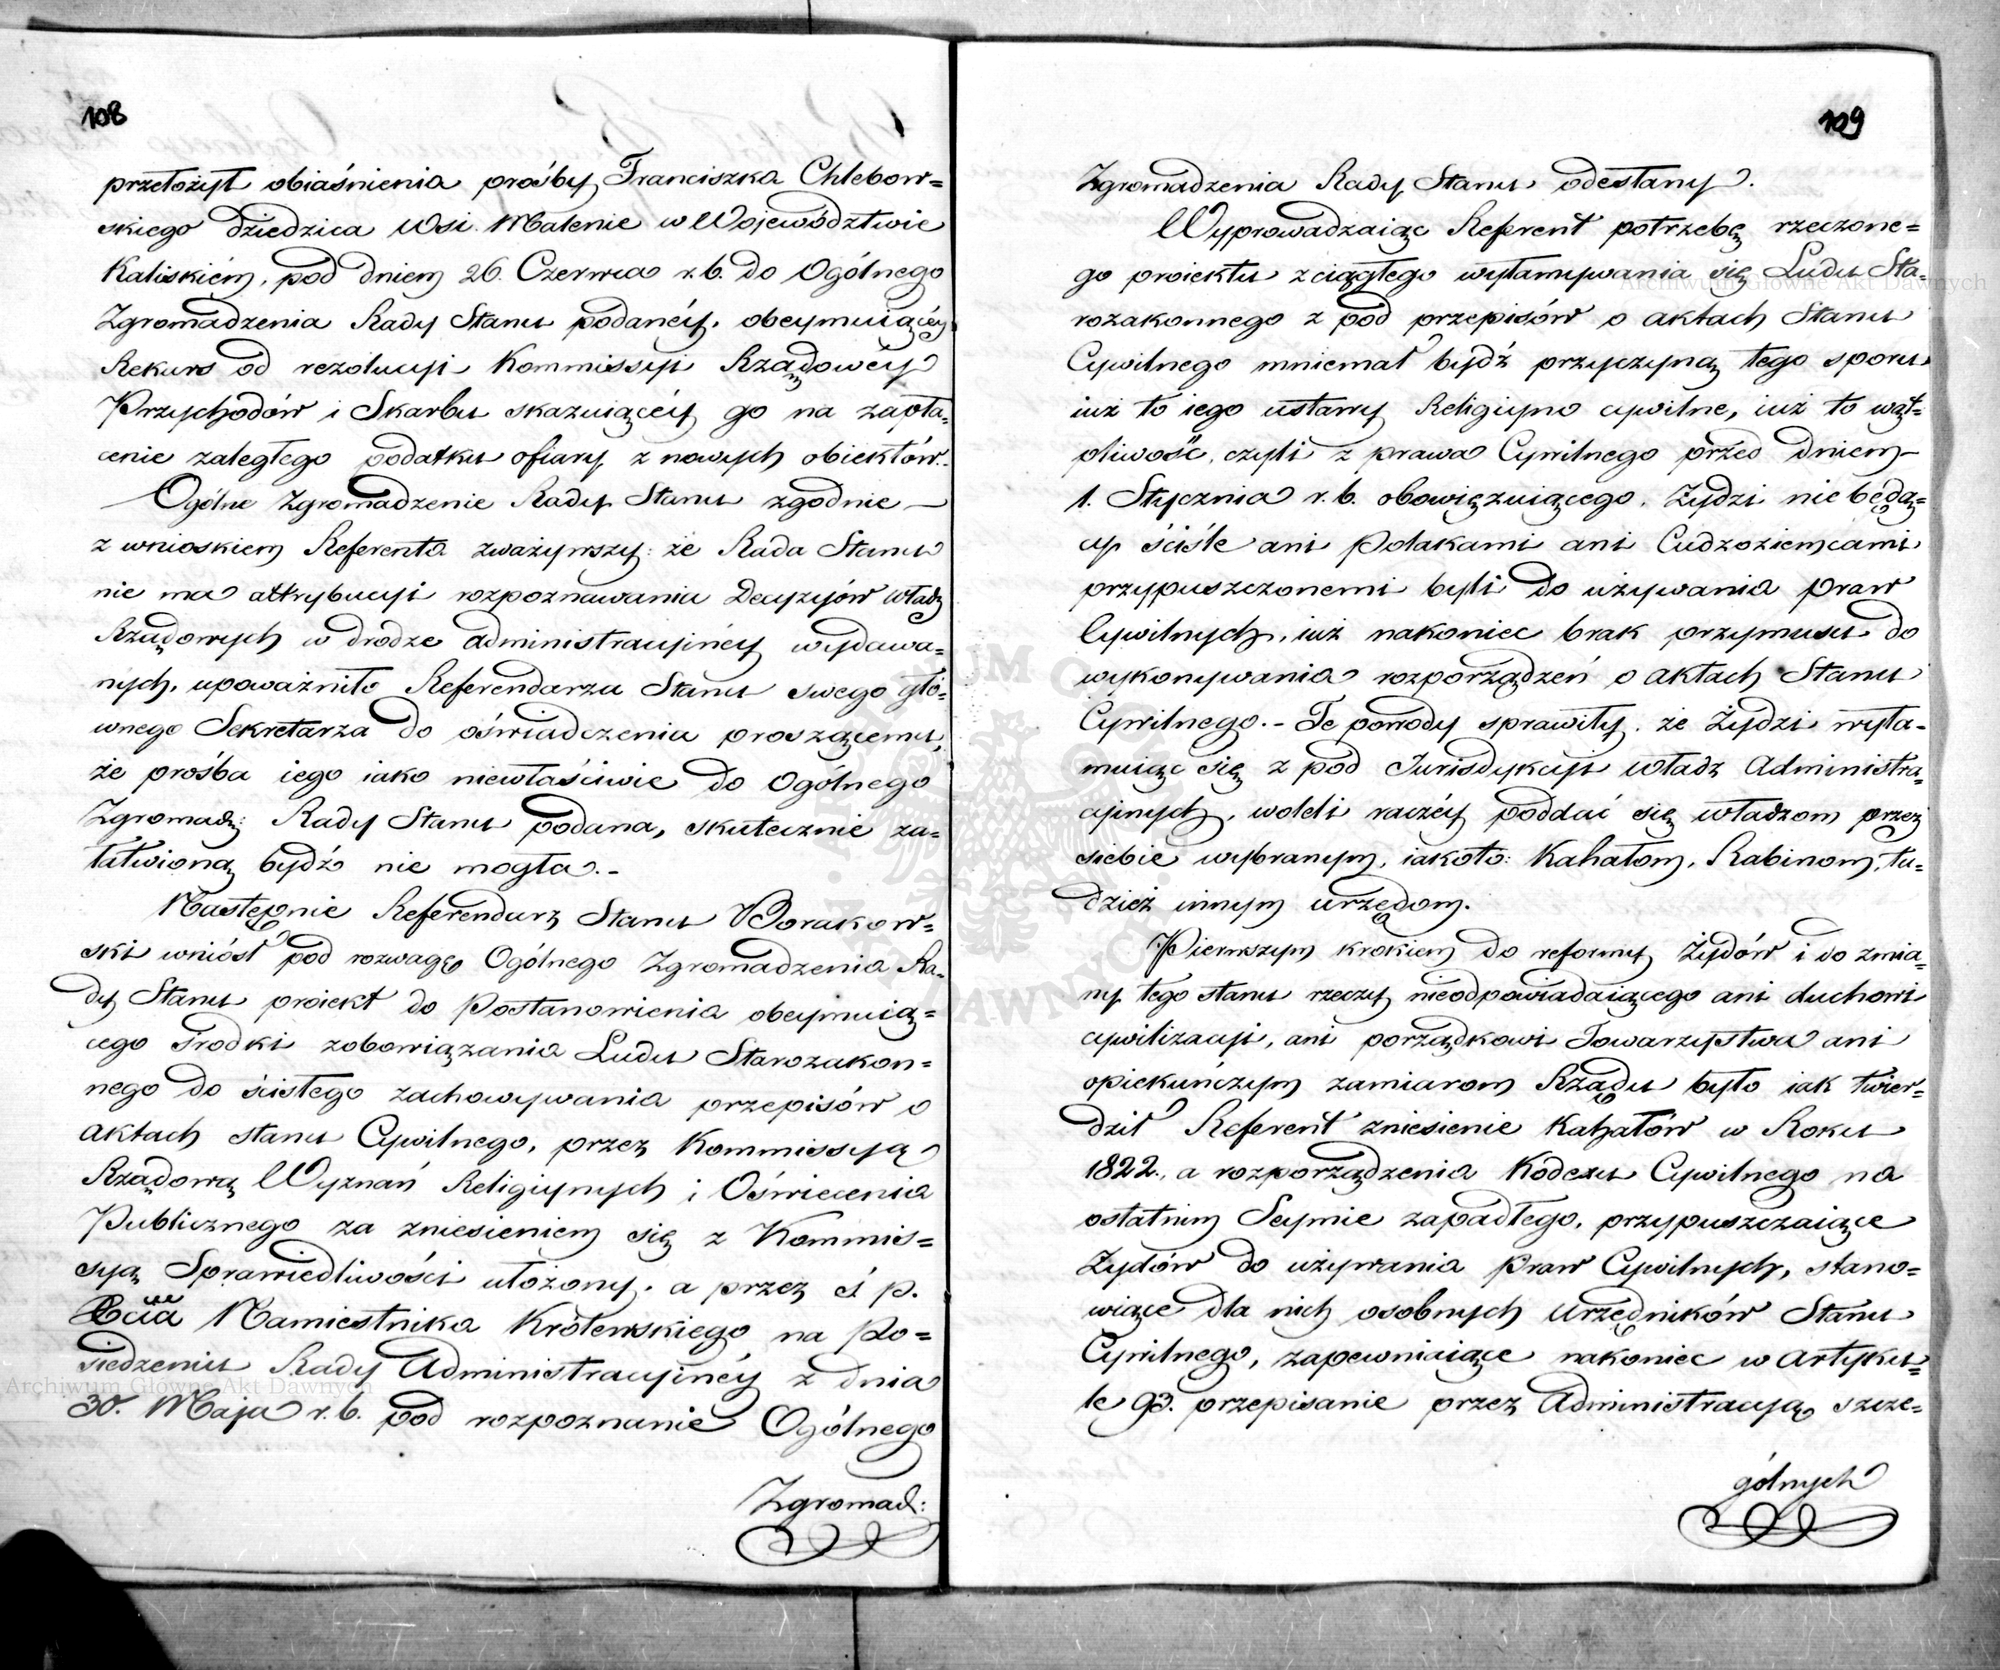 108
przełożył obiaśnienia prośby Franciszka Chlebow=
skiego dziedzica Wsi Malenie w Województwie
Kaliskiém, pod dniem 26. Czerwca r. b. do Ogólnego
Zgromadzenia Rady Stanu podanéy, obeymuiącéy
Rekurs od rezolucyi Kommissyi Rządowéy
Przychodów i Skarbu skazuiącéy go na zapła=
cenie zaległego podatku ofiary z nowych obiektów.-
Ogólne Zgromadzenie Rady Stanu zgodnie —
z wnioskiem Referenta zważywszy: że Rada Stanu
nie ma attrybucyi rozpoznawania Decyzyów Władz
Rządowych w drodze administracyinéy wydawa=
nych, upoważniło Referendarza Stanu swego głó=
wnego Sekretarza do oświadczenia proszącemu,
że prośba iego iako niewłaściwie do Ogólnego
Zgromadz: Rady Stanu podana, skutecznie za=
łatwioną bydź nie mogła.-
Następnie Referendarz Stanu Worakow=
ski wniósł pod rozwagę Ogólnego Zgromadzenia Ra=
dy Stanu proiekt do Postanowienia obeymuią=
cego środki zobowiązania Ludu Starozakon=
nego do ścisłego zachowywania przepisów o
Aktach stanu Cywilnego, przez Kommissyą
Rządową Wyznań Religiynych i Oświecenia
Publicznego za zniesieniem się z Kommis=
syą Sprawiedliwości ułożony, a przez ś p.
Xcia Namiestnika Królewskiego na Po=
siedzeniu Rady Administracyinéy z dnia
30. Maja r. b. pod rozpoznanie Ogólnego
Zgromad:
109
Zgromadzenia Rady Stanu odesłany.
Wyprowadzaiąc Referent potrzebę rzeczone=
go proiektu z ciągłego wyłamywania się Ludu Sta=
rozakonnego z pod przepisów o aktach Stanu
Cywilnego mniemał bydź przyczyną tego sporu
iuż to iego ustawy Religiyno cywilne, iuż to wąt=
pliwość, czyli z prawa Cywilnego przed dniem —
1. Stycznia r. b. obowiązuiącego, Żydzi nie będą=
cy ściśle ani Polakami ani Cudzoziemcami
przypuszczonemi byli do używania praw
Cywilnych, iuż nakoniec brak przymusu do
wykonywania rozporządzeń o aktach Stanu
Cywilnego.- Te powody sprawiły, że Żydzi wyła=
muiąc się z pod Jurisdykcyi Władz Administra=
cyinych, woleli raczéy poddać się władzom przez
siebie wybranym, iakoto: Kahałom, Rabinom, tu=
dzież innym urzędom.
Pierwszym krokiem do reformy Żydów i do zmia=
ny tego stanu rzeczy nieodpowiadaiącego ani duchowi
cywilizacyi, ani porządkowi Towarzystwa ani
opiekuńczym zamiarom Rządu było iak twier=
dził Referent zniesienie Kahałów w Roku
1822., a rozporządzenia Kodexu Cywilnego na
ostatnim Seymie zapadłego, przypuszczaiące
Żydów do używania Praw Cywilnych, stano=
wiące dla nich osobnych Urzędników Stanu
Cywilnego, zapewniaiące nakoniec w Artyku=
le 93. przepisanie przez Administracyą szcze=
gólnych
Archiwum Główne Akt Dawnych
Archiwum Główne Akt Dawnych